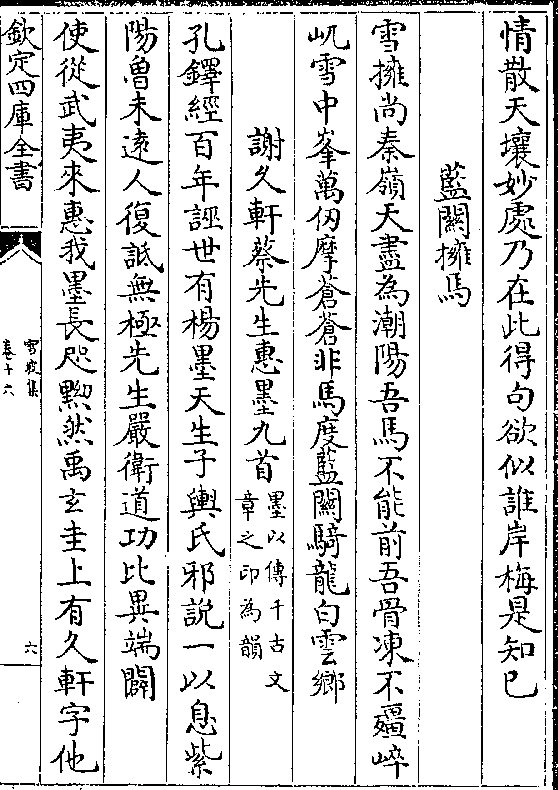 情散天壤妙處乃在此得句欲似誰岸梅是知已
藍闗擁馬
雪擁尚秦嶺天盡為潮陽吾馬不能前吾骨凍不殭崪
屼雪中峯萬仭摩蒼蒼非馬度藍闗騎龍白雲鄉
謝久軒蔡先生惠墨九首墨以傳千古文章之印為韻
孔鐸經百年誣世有楊墨天生子輿氏邪說一以息紫
陽曽未逺人復詆無極先生嚴衛道功比異端闢
使從武夷來惠我墨長咫黝然禹玄圭上有久軒字他
欽定四庫全書
雪坡集
卷十六
六